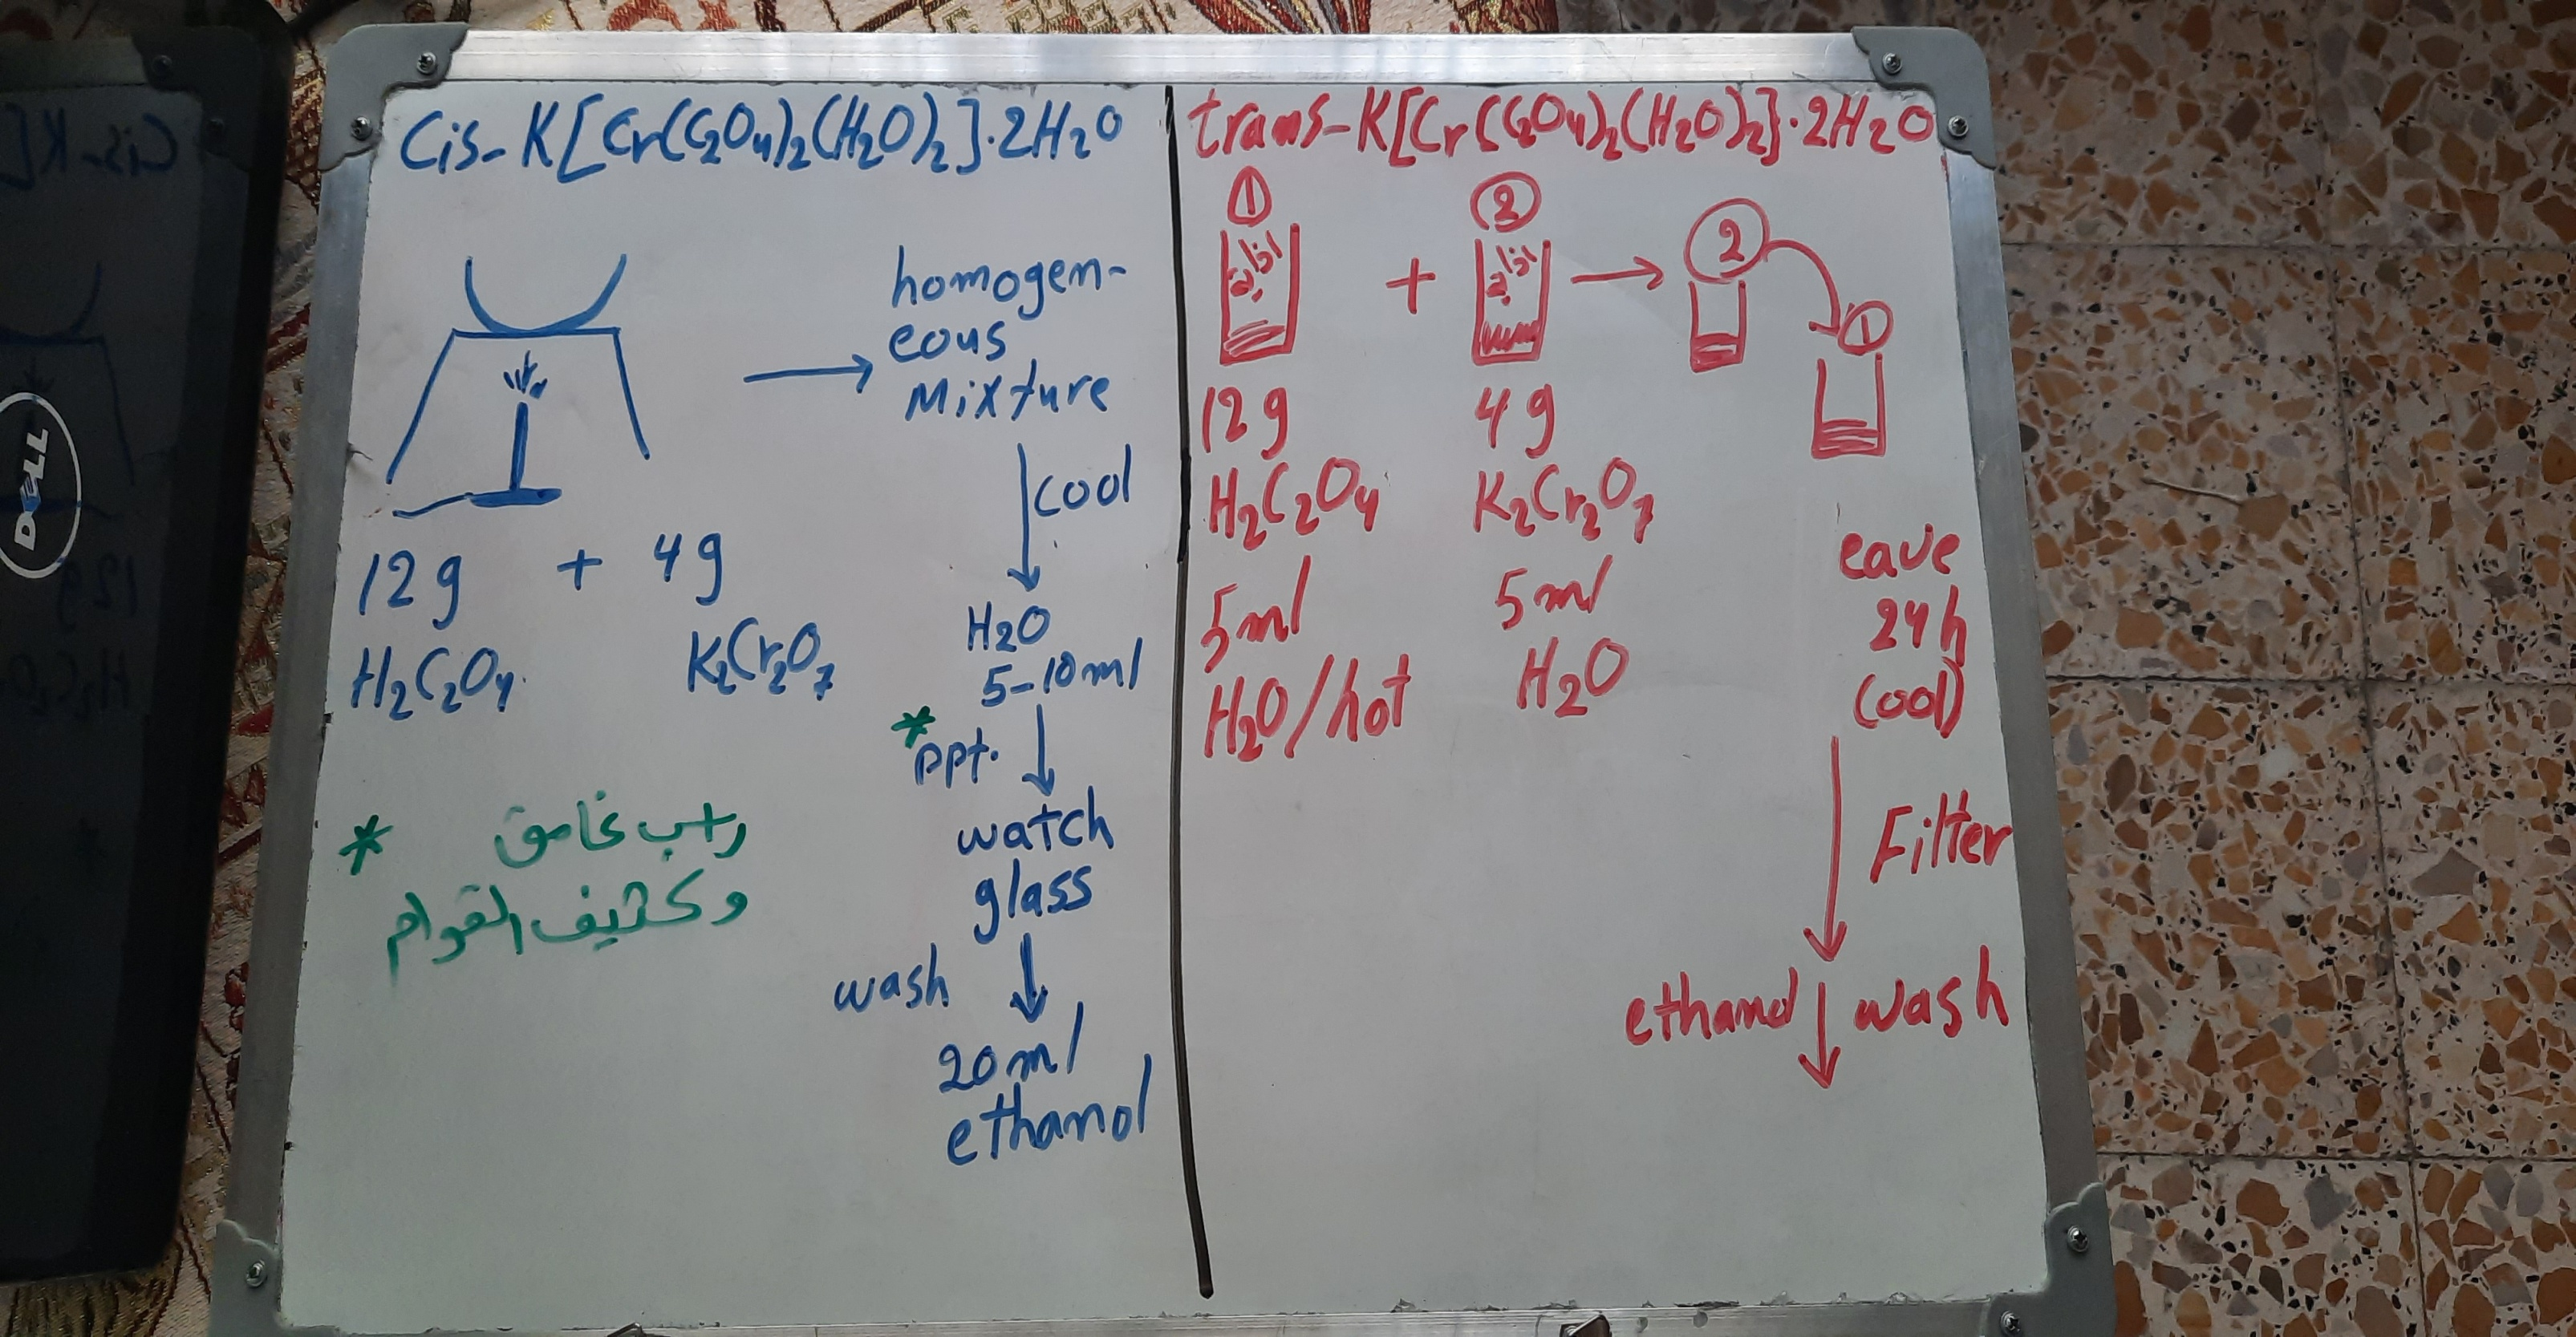 Cis-K[Cr(C2O4)2(H2O)2]·2H2O
homogen-
eous
Mixture
cool
12g + 4g
H2C2O4 K2Cr2O7
H2O
5-10ml
* ppt.
watch
glass
wash
20ml
ethanol
* راسب غامق
وكثيف القوام
trans-K[Cr(C2O4)2(H2O)2]·2H2O
1 + 2
اذابة اذابة
2
1
12g 4g
H2C2O4 K2Cr2O7
5ml 5ml
H2O/hot H2O
eave
24h
(cool)
Filter
ethanol wash
DELL